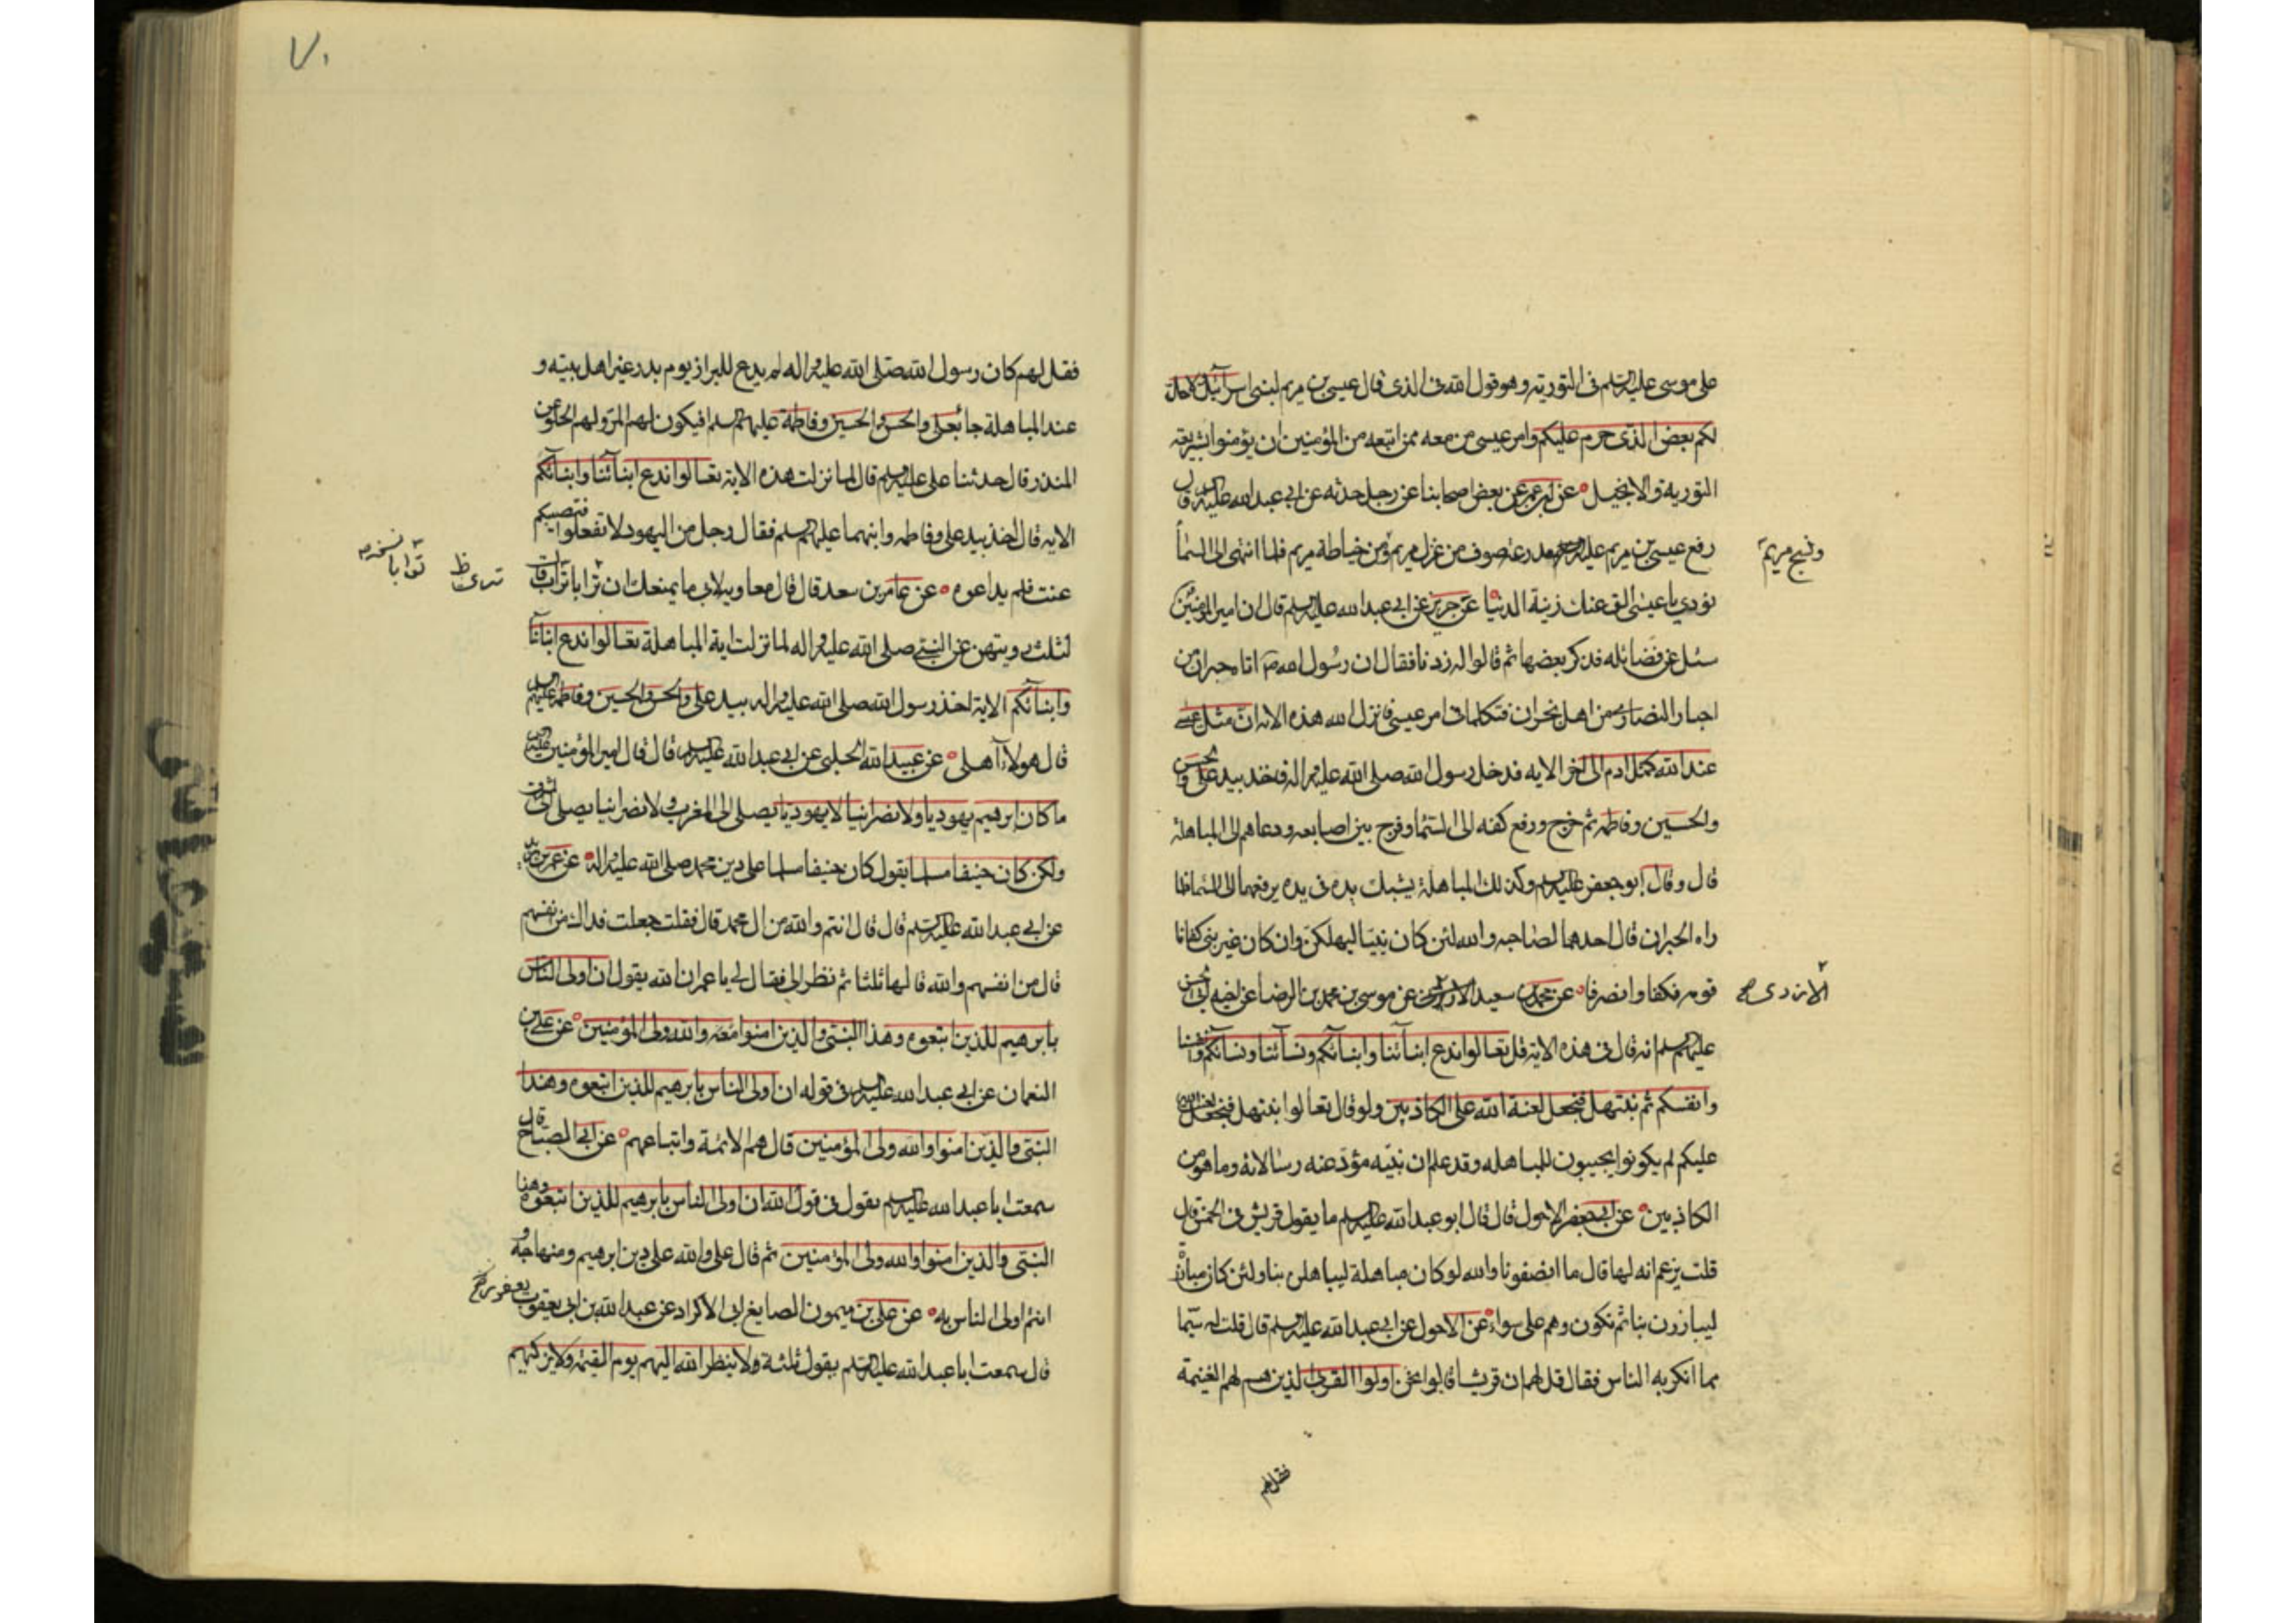 على موسى عليه السلم فى التورية وهو قول الله فى الذى قال عيسى بن مريم لبنى اسرآئيل لاحل
لكم بعض الذى حرم عليكم وامر عيسى من معه ممن اتبعه من المؤمنين ان يؤمنوا بشريعة
التورية والانجيل عن ابن عمر عن بعض اصحابنا عن رجل حدثه عن ابى عبد الله عليه السلم قال
رفع عيسى بن مريم عليه السلم بمدرعة صوف من غزل مريم ومن خياطة مريم فلما انتهى الى السماء
ونسج مريم
نودى يا عيسى الق عنك زينة الدنيا عن جرير عن ابى عبد الله عليه السلم قال ان امير المؤمنين
سئل عن فضائله فذكر بعضها ثم قالوا له زدنا فقال ان رسول الله ص اتاه حبران من
احبار النصارى من اهل نجران فتكلما فى امر عيسى فانزل الله هذه الاية ان مثل عيسى
عند الله كمثل ادم الى اخر الاية فدخل رسول الله صلى الله عليه واله فاخذ بيد على والحسن
والحسين وفاطمة ثم خرج ورفع كفه الى السماء وفرج بين اصابعه ودعاهم الى المباهلة
قال وقال ابو جعفر عليه السلم وكذلك المباهلة يشبك يده فى يده يرفعهما الى السماء فلما
راه الحبران قال احدهما لصاحبه والله لئن كان نبيا لنهلكن وان كان غير نبى كفانا
قومه فكفا وانصرفا عن محمد بن سعيد عن موسى بن محمد بن الرضا عن اخيه ابى الحسن
الازدى صح
عليهم السلم انه قال فى هذه الاية قل تعالوا ندع ابنآئنا وابنآئكم ونسآئنا ونسآئكم وانفسنا
وانفسكم ثم نبتهل فنجعل لعنة الله على الكاذبين ولو قال تعالوا نبتهل فنجعل لعنة الله
عليكم لم يكونوا يجيبون للمباهلة وقد علم ان نبيه مؤد عنه رسالاته وما هو من
الكاذبين عن ابى جعفر الاحول قال قال ابو عبد الله عليه السلم ما يقول قريش فى الخمس قال
قلت يزعم انه لها قال ما انصفونا والله لو كان مباهلة ليباهلن بنا ولئن كان مبارزة
ليبارزن بنا ثم نكون وهم على سواء عن الاحول عن ابى عبد الله عليه السلم قال قلت له شيئا
مما انكر به الناس فقال قل لهم ان قريشا قالوا نحن اولوا القربى الذين هم لهم الغنيمة
فقل لهم
٧٠
فقل لهم كان رسول الله صلى الله عليه واله لم يدع للبراز يوم بدر غير اهل بيته و
عند المباهلة جا بعلى والحسن والحسين وفاطمة عليهم السلم افيكون لهم المر ولهم الحلو عن
المنذر قال حدثنا على عليه السلم قال لما نزلت هذه الاية تعالوا ندع ابنآئنا وابنآئكم
الاية قال اخذ بيد على وفاطمة وابنيهما عليهم السلم فقال رجل من اليهود لا تفعلوا فتصيبكم
عنت فلم يداعوه عن عامر بن سعد قال قال معاوية لابى ما يمنعك ان
لثلث رويتهن عن النبى صلى الله عليه واله لما نزلت اية المباهلة تعالوا ندع ابنائنا
وابنآئكم الاية اخذ رسول الله صلى الله عليه واله بيد على والحسن والحسين وفاطمة عليهم السلم
قال هولاء اهلى عن عبيد الله الحلبى عن ابى عبد الله عليه السلم قال قال امير المؤمنين عليه السلم
ما كان ابرهيم يهوديا ولا نصرانيا لا يهوديا يصلى الى المغرب ولا نصرانيا يصلى الى الشرق
ولكن كان حنيفا مسلما يقول كان حنيفا مسلما على دين محمد صلى الله عليه واله عن عمر بن
عن ابى عبد الله عليه السلم قال قال انتم والله من ال محمد قال فقلت جعلت فداك من انفسهم
قال من انفسهم والله قالها ثلثا ثم نظر الى فقال لى يا عمر ان الله يقول ان اولى الناس
بابرهيم للذين اتبعوه وهذا النبى والذين امنوا معه والله ولى المؤمنين عن على بن
النعمان عن ابى عبد الله عليه السلم فى قوله ان اولى الناس بابرهيم للذين اتبعوه وهذا
النبى والذين امنوا والله ولى المؤمنين قال هم الائمة واتباعهم عن ابى الصباح قال
سمعت ابا عبد الله عليه السلم يقول فى قول الله ان اولى الناس بابرهيم للذين اتبعوه وهذا
النبى والذين امنوا والله ولى المؤمنين ثم قال على والله على دين ابرهيم ومنهاجه و
انتم اولى الناس به عن على بن ميمون الصايغ ابى الاكراد عن عبد الله بن ابى يعقوب
قال سمعت ابا عبد الله عليه السلم يقول ثلثة ولا ينظر الله اليهم يوم القيمة ولا يزكيهم